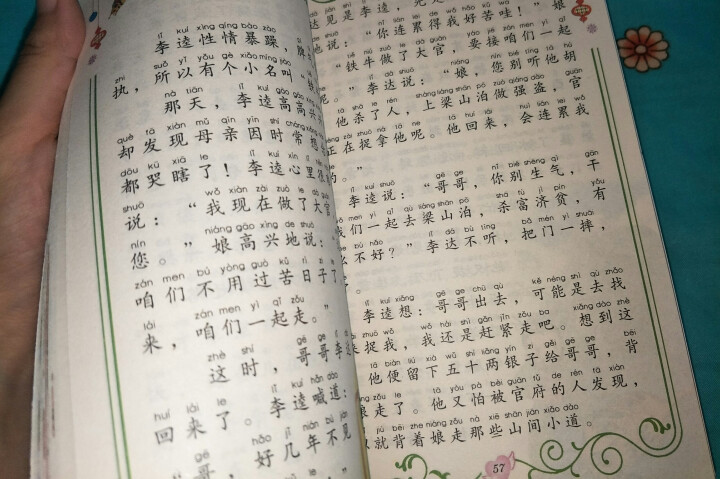 lǐ kuí xìng qíng bào zào
李逵性情暴躁，脾
zhí suǒ yǐ yǒu gè xiǎo míng jiào
执，所以有个小名叫“铁
nà tiān lǐ kuí gāo gāo
那天，李逵高高兴
què fā xiàn mǔ qīn yīn shí cháng
却发现母亲因时常想
dōu kū xiā le lǐ kuí xīn lǐ
都哭瞎了！李逵心里很
shuō wǒ xiàn zài zuò le dà guān
说：“我现在做了大官
nín niáng gāo xìng de shuō
您。”娘高兴地说：
zán men bú yòng guò kǔ rì zi le
咱们不用过苦日子了
lái zán men yì qǐ zǒu
来，咱们一起走。”
zhè shí gē ge lǐ
这时，哥哥李
huí lái le lǐ kuí hǎn dào
回来了。李逵喊道：
gē hǎo jǐ nián bú jiàn
“哥哥，好几年不见
达见是李逵，
shuō nǐ lián lěi de wǒ hǎo kǔ wa niáng
地说：“你连累得我好苦哇！”娘
tiě niú zuò le dà guān yào jiē zán men yì qǐ
“铁牛做了大官，要接咱们一起
lǐ dá shuō niáng nín bié tīng tā hú
呢。”李达说：“娘，您别听他胡
tā shā le rén shàng liáng shān pō zuò qiáng dào guān
他杀了人，上梁山泊做强盗，官
zhèng zài zhuō ná tā ne tā huí lái huì lián lěi wǒ
正在捉拿他呢。他回来，会连累我
的。”
lǐ kuí shuō gē ge nǐ bié shēng qì gàn
李逵说：“哥哥，你别生气，干
men yì qǐ qù liáng shān pō shā fù jì pín yǒu
我们一起去梁山泊，杀富济贫，有
bù hǎo lǐ dá bù tīng bǎ mén yì shuāi
么不好？”李达不听，把门一摔，
lǐ kuí xiǎng gē ge chū qù kě néng shì qù zhǎo
李逵想：哥哥出去，可能是去找
zhuō wǒ wǒ hái shì gǎn jǐn zǒu ba xiǎng dào zhè
来捉我，我还是赶紧走吧。想到这
tā biàn liú xià wǔ shí liǎng yín zi gěi gē ge bēi
他便留下五十两银子给哥哥，背
niáng zǒu le tā yòu pà bèi guān fǔ de rén fā xiàn
娘走了。他又怕被官府的人发现，
jiù bēi zhe niáng zǒu nà xiē shān jiān xiǎo dào
就背着娘走那些山间小道。
57